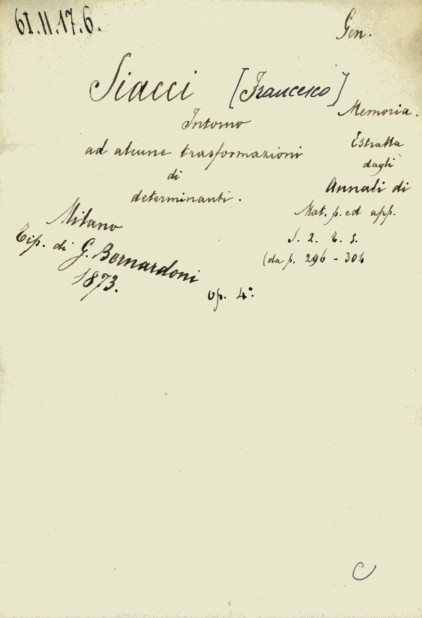 61.II.17.6.
Gen.
Siacci [Francesco]
Memoria.
Intorno
ad alcune trasformazioni
di
determinanti.
Estratta
dagli
Annali di
Mat. p. ed app.
S. 2. t. 5.
(da p. 296 - 304
Milano
Tip. di G. Bernardoni
1873.
op. 4°.
C